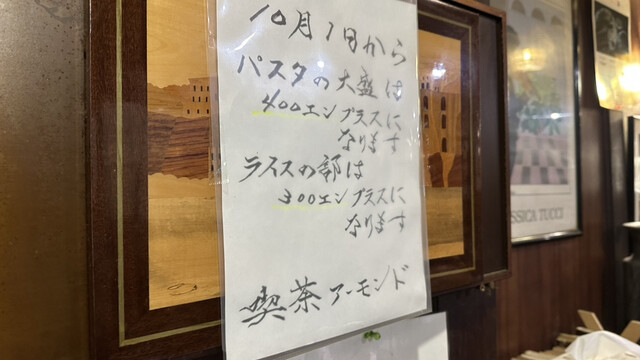 10月1日から
パスタの大盛は
400エンプラスに
なります
ライスの部は
300エンプラスに
なります
喫茶アーモンド
SSICA TUCCI